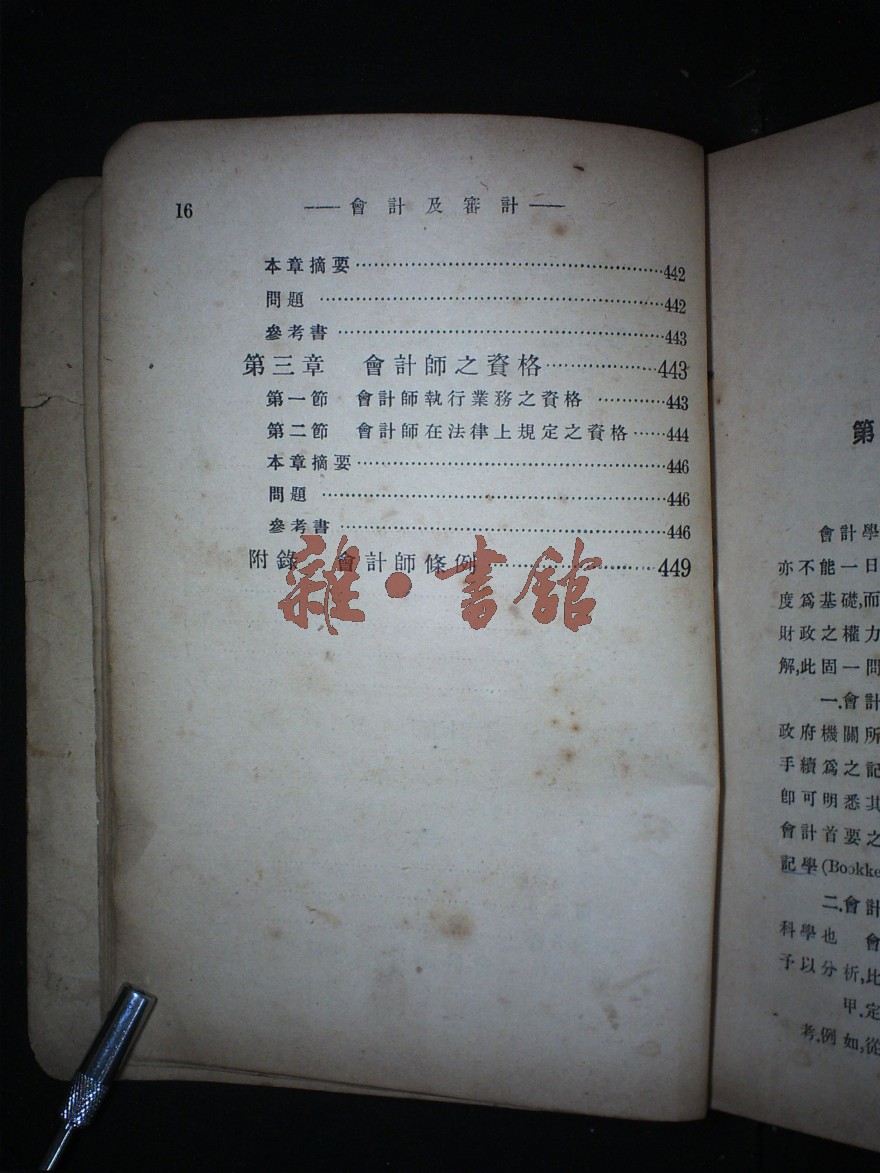 16 ── 會計及審計 ──
本章摘要……442
問題……442
參考書……443
第三章 會計師之資格……443
第一節 會計師執行業務之資格……443
第二節 會計師在法律上規定之資格……444
本章摘要……446
問題……446
參考書……446
附錄 會計師條例……449
雜·書館
第
會計學
亦不能一日
度爲基礎,而
財政之權力
解,此固一問
一.會計
政府機關所
手續爲之記
卽可明悉其
會計首要之
記學(Bookke
二.會計
科學也 會
予以分析,比
甲.定
考.例如,從